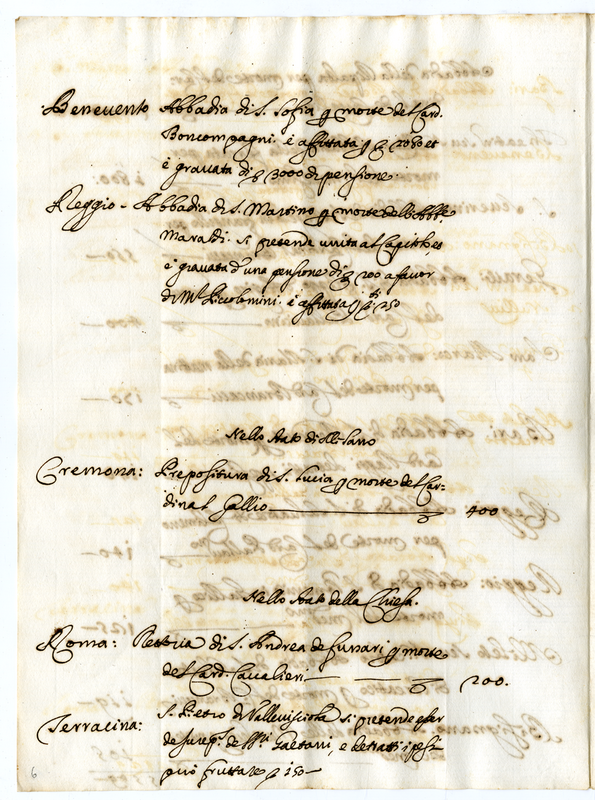 Benevento Abbadia di S. Sofia p morte del Card.
Boncompagni. è affittata p 2080 et
è gravata di 3000 di pensione.
Reggio - Abbadia di S. Martino p morte dell'Abbe
Maraldi. si pretende unita al Capitolo, et
è gravata d'una pensione di 200 a favor
di Mr. Piccolomini. è affittata 250
Nello Stato di Milano
Cremona: Prepositura di S. Lucia p morte del Car:
dinal Gallio 400
Nello Stato della Chiesa.
Roma: Rettoria di S. Andrea de funari p morte
del Card. Cavalieri 200.
Terracina: S. Pietro di Vallevisciola si pretende esser
de Juspt. de SSri Gaetani, e detratti i pesi
può fruttare 150
6